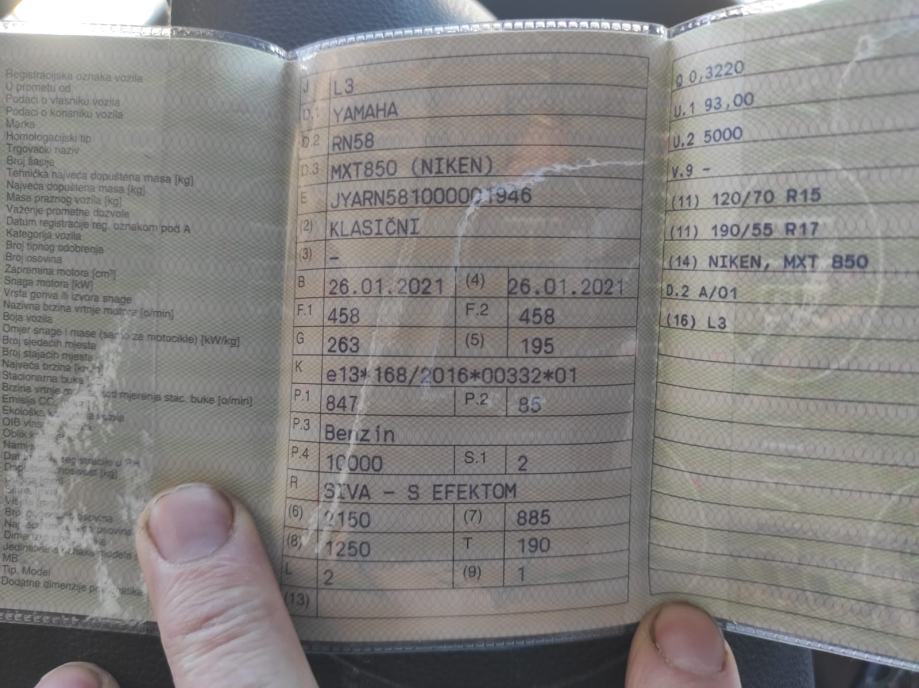 Registracijska oznaka vozila
U prometu od
Podaci o vlasniku vozila
Podaci o korisniku vozila
Marka
Homologacijski tip
Trgovački naziv
Broj šasije
Tehnička najveća dopuštena masa [kg]
Najveća dopuštena masa [kg]
Masa praznog vozila [kg]
Važenje prometne dozvole
Datum registracije reg. oznakom pod A
Kategorija vozila
Broj tipnog odobrenja
Broj osovina
Zapremina motora [cm³]
Snaga motora [kW]
Vrsta goriva ili izvora snage
Nazivna brzina vrtnje motora [o/min]
Boja vozila
Omjer snage i mase (samo za motocikle) [kW/kg]
Broj sjedećih mjesta
Broj stajaćih mjesta
Najveća brzina
Stacionarna buka
Brzina vrtnje mjerenja stac. buke [o/min]
MB
Tip, Model
Dodatne dimenzije
J L3
D.1 YAMAHA
D.2 RN58
D.3 MXT850 (NIKEN)
E JYARN581000001946
(2) KLASIČNI
(3) –
B 26.01.2021 (4) 26.01.2021
F.1 458 F.2 458
G 263 (5) 195
K e13*168/2016*00332*01
P.1 847 P.2 85
P.3 Benzin
P.4 10000 S.1 2
R SIVA – S EFEKTOM
(6) 2150 (7) 885
(8) 1250 T 190
L 2 (9) 1
(13)
Q 0,3220
U.1 93,00
U.2 5000
V.9 –
(11) 120/70 R15
(11) 190/55 R17
(14) NIKEN, MXT 850
D.2 A/01
(16) L3